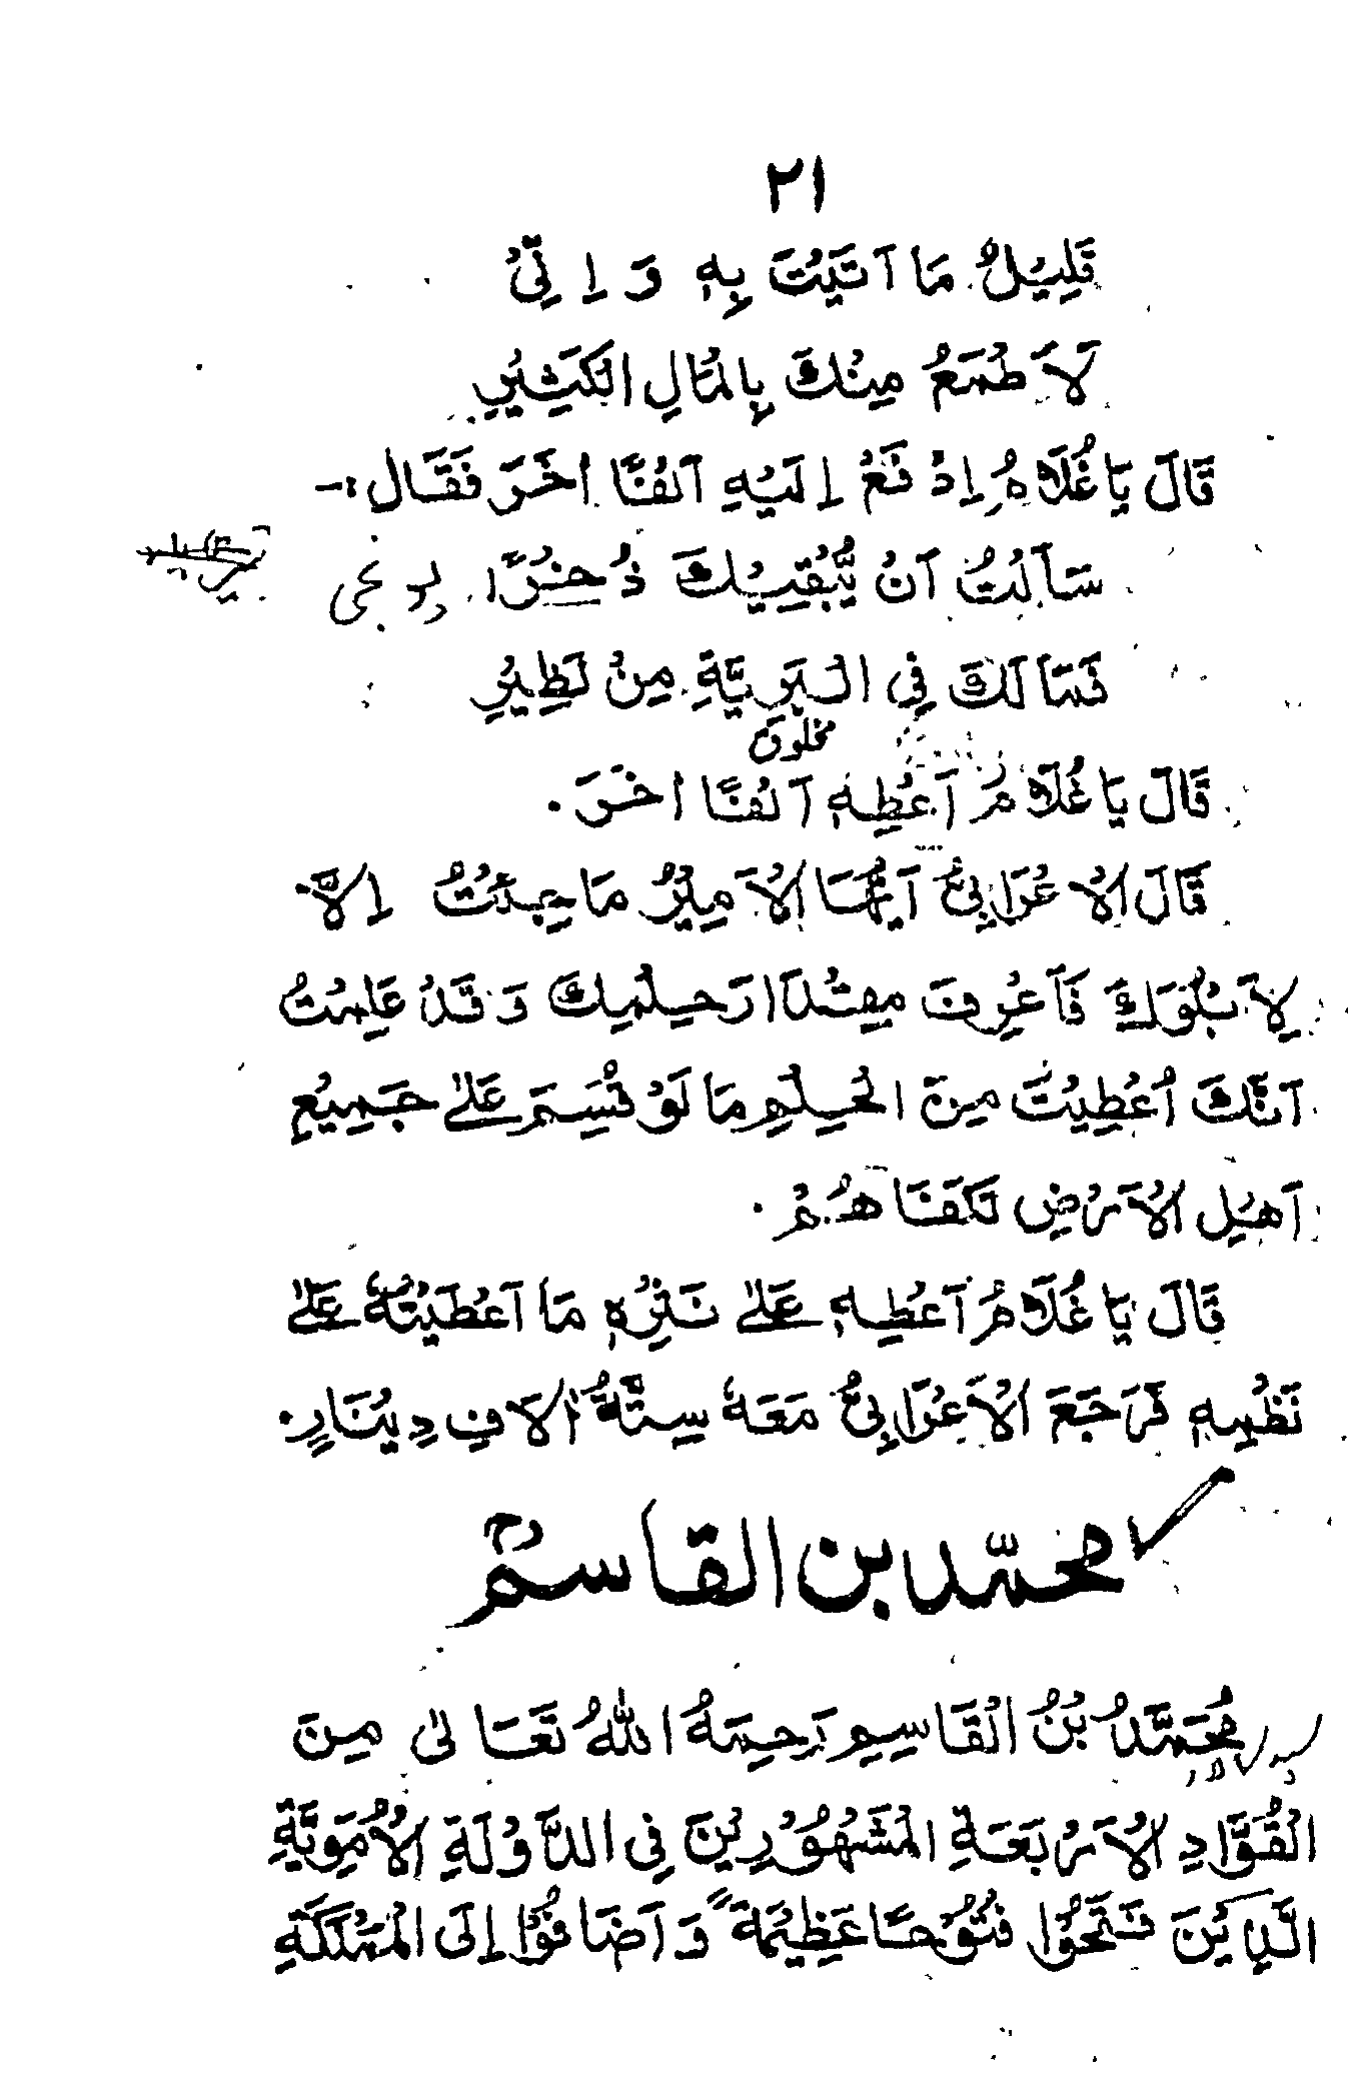 ٢١
قَلِيْلٌ مَا اَتَيْتَ بِهٖ وَ اِنِّيْ
لَاَطْمَعُ مِنْكَ بِالْمَالِ الْكَثِيْرِ
قَالَ يَا غُلَامُ اِدْفَعْ اِلَيْهِ اَلْفًا اُخَرَ فَقَالَ :-
سَاَلْتُ اَنْ يُّبْقِيْكَ ذُخْرًا
فَمَا لَكَ فِي الْبَرِيَّةِ مِنْ نَظِيْرِ
مخلوق
قَالَ يَا غُلَامُ اَعْطِهٖ اَلْفًا اُخَرَ ۰
قَالَ الْاَعْرَابِيُّ اَيُّهَا الْاَمِيْرُ مَا جِئْتُ اِلَّا
لِاَبْلُوَكَ فَاَعْرِفَ مِقْدَارَ حِلْمِكَ وَ قَدْ عَلِمْتُ
اَنَّكَ اُعْطِيْتَ مِنَ الْحِلْمِ مَا لَوْ قُسِمَ عَلٰے جَمِيْعِ
اَهْلِ الْاَرْضِ لَكَفَاهُمْ ۰
قَالَ يَا غُلَامُ اَعْطِهٖ عَلٰے نَثْرِهٖ مَا اَعْطَيْتُهٗ عَلٰے
نَظْمِهٖ فَرَجَعَ الْاَعْرَابِيُّ مَعَهٗ سِتَّةُ اٰلَافِ دِيْنَارٍ ۰
محمّد بن القاسمؒ
مُحَمَّدُ بْنُ الْقَاسِمِ رَحِمَهُ اللّٰهُ تَعَالٰى مِنَ
الْقُوَّادِ الْاَرْبَعَةِ الْمَشْهُوْرِيْنَ فِي الدَّوْلَةِ الْاُمَوِيَّةِ
الَّذِيْنَ فَتَحُوْا فُتُوْحًا عَظِيْمَةً وَ اَضَافُوْا اِلَى الْمَمْلَكَةِ